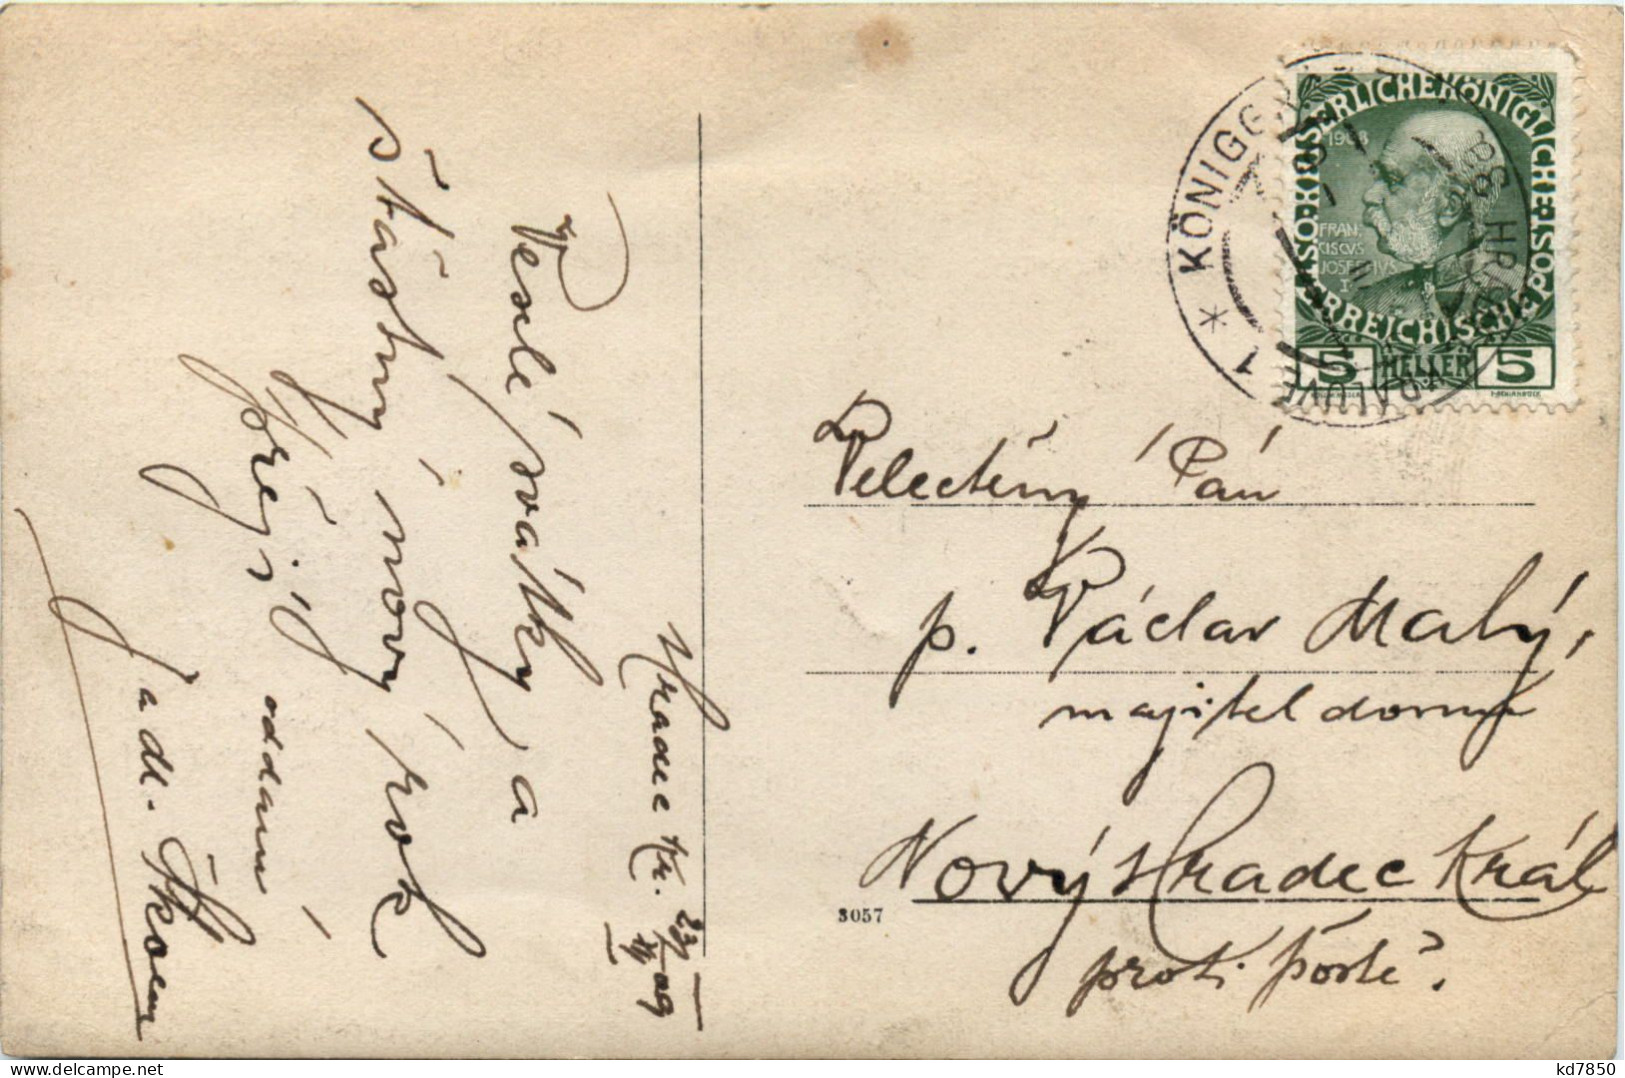 Veselé svátky a
šťástný nový rok
přejí
oddaní
Hradec Kr. 23/XII 09
KÖNIGGR
HR
1
KAISERLICHE KÖNIGLICHE ÖSTERREICHISCHE POST
1908
FRAN
CISCVS
JOSEPHVS
I
5 HELLER 5
Velectěný Pán
p. Václav Malý,
majitel domu
Nový Hradec Král
proti poště.
3057
kd7850